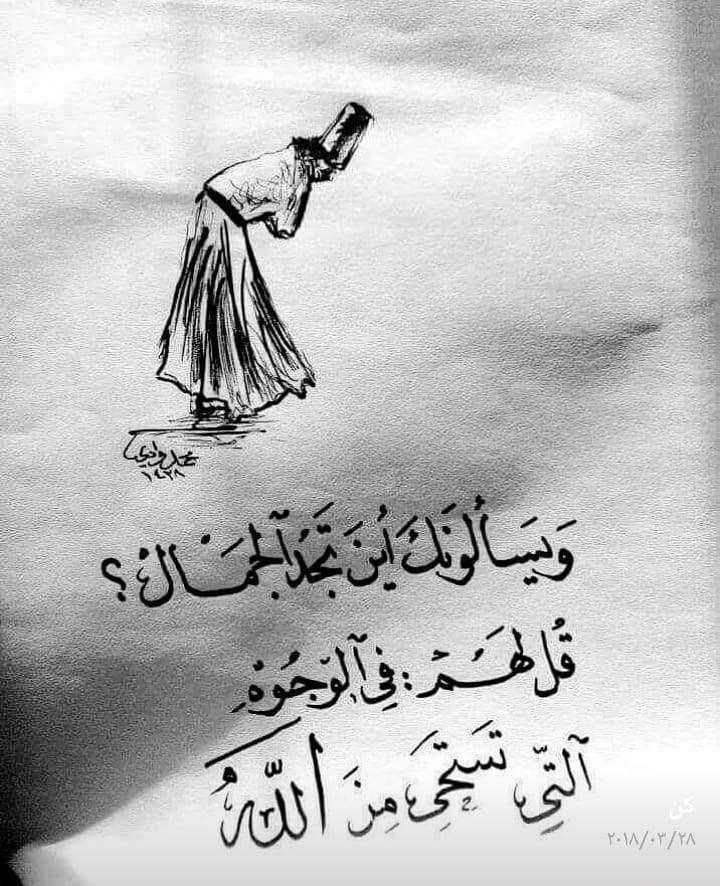 ١٤٢٨
وَيَسَألُونَكَ أَيْنَ تَجَدُ الجَمَالْ؟
قُل لَهُمْ: فِي الوُجُوْهِ
اَلَّتِي تَسْتَحَيِ مِنَ اللَّهُ
كن
٢٠١٨/٠٣/٢٨